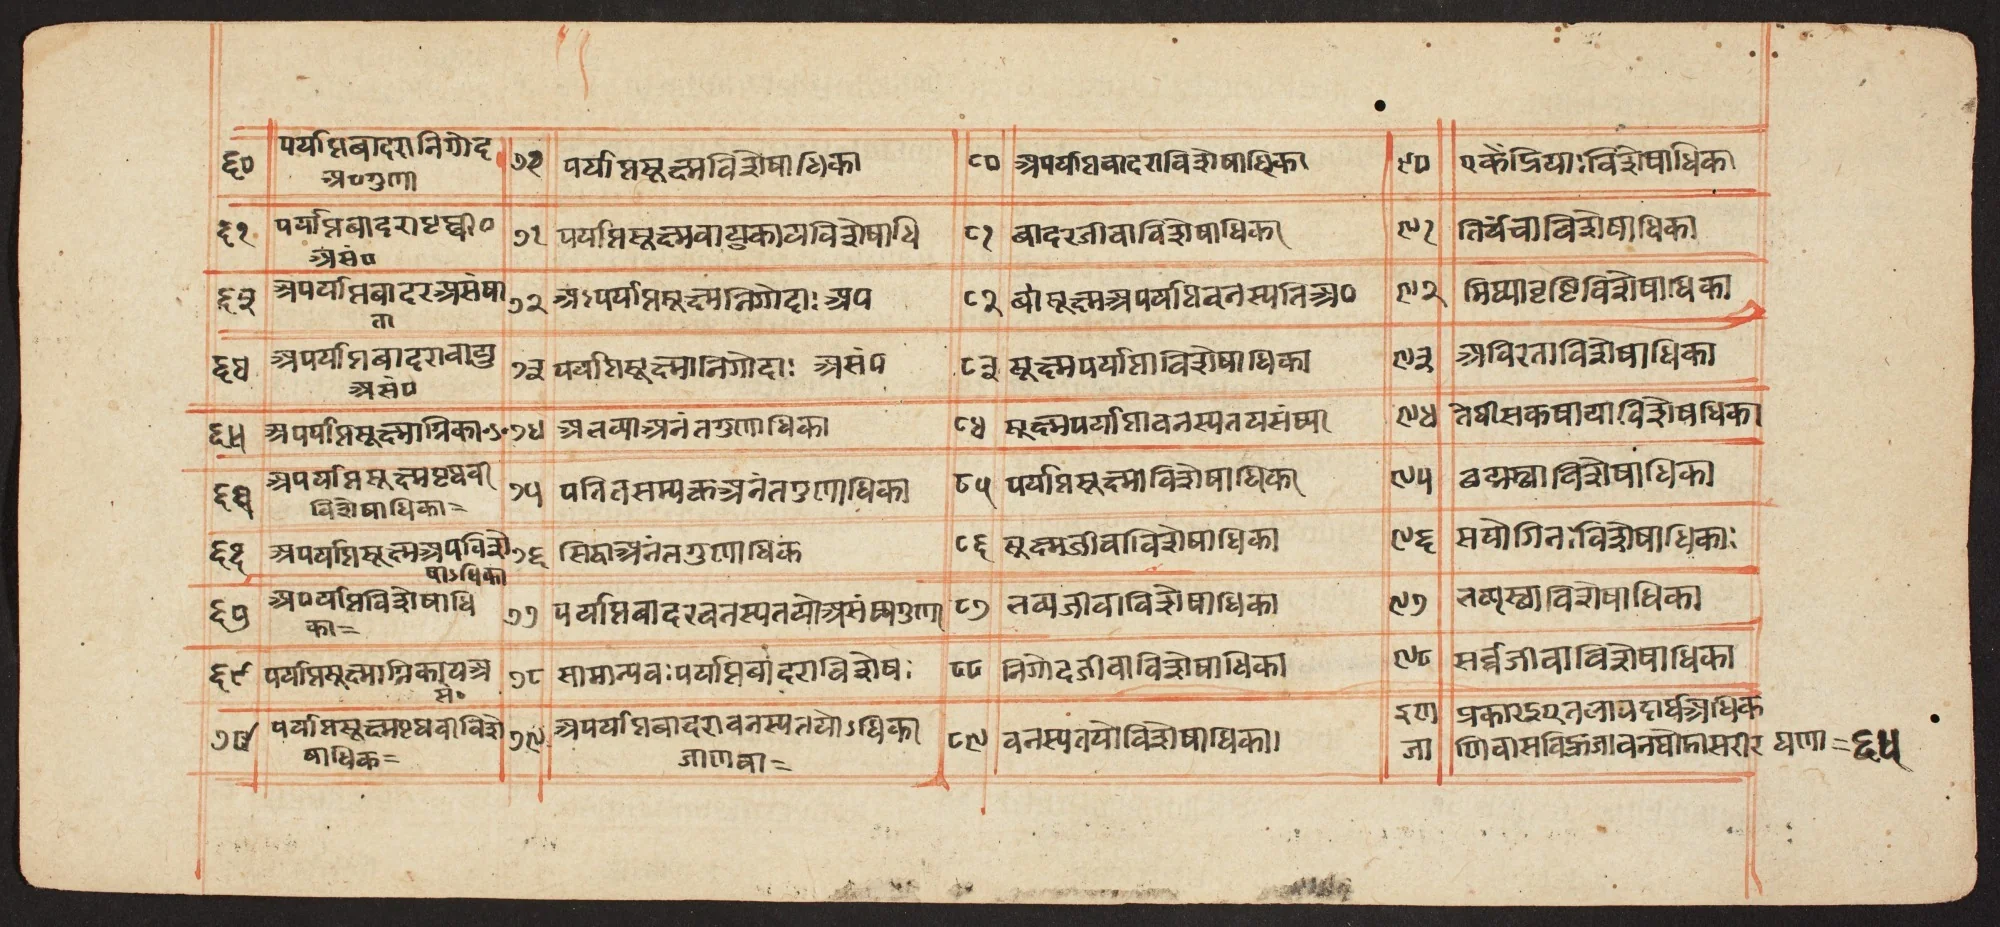 ६० पर्याप्तबादरानिगोद
अ०गुणा
६१ पर्याप्तबादराष्टथ्वी०
असं०
६३ अपर्याप्तबादरअसंषा
ता
६४ अपर्याप्तबादरावायु
असं०
६५ अपर्याप्तसूक्ष्माग्निका
अपर्याप्तसूक्ष्मष्टथवी
विशेषाधिका=
अपर्याप्तसूक्ष्मअपविशे
षाऽधिका
अ०र्याप्तविशेषाधि
का=
६९ पर्याप्तसूक्ष्माग्निकायअ
सं०
पर्याप्तसूक्ष्मष्टथवीविशे
षाधिक=
पर्याप्तसूक्ष्मविशेषाधिका
७१ पर्याप्तसूक्ष्मवायुकायविशेषाधि
७२ अऽपर्याप्तसूक्ष्मनिगोदाः अ०
७३ पर्याप्तसूक्ष्मानिगोदाः असं०
७४ अभव्याअनंतगुणाधिका
७५ पतितसम्यकअनंतगुणाधिका
७६ सिद्धाअनंतगुणाधिक
७७ पर्याप्तबादरवनस्पतयोअसंष्यगुणा
७८ सामान्यवः पर्याप्तबादराविशेषः
७९ अपर्याप्तबादरावनस्पतयोऽधिका
जाणवा=
८० अपर्याप्तबादराविशेषाधिका
८१ बादरजीवाविशेषाधिका
८२ बासूक्ष्मअपर्याप्तवनस्पतिअ०
८३ सूक्ष्मपर्याप्ताविशेषाधिका
८४ सूक्ष्मपर्याप्तावनस्पतयसंष्या
८५ पर्याप्तसूक्ष्माविशेषाधिका
८६ सूक्ष्मजीवाविशेषाधिका
८७ भव्यजीवाविशेषाधिका
८८ निगोदजीवाविशेषाधिका
८९ वनस्पतयोविशेषाधिका।
९० एकेंद्रियाःविशेषाधिका
९१ तिर्यंचाविशेषाधिका
९२ मिथ्यादृष्टिविशेषाधिका
९३ अविरताविशेषाधिका
९४ तेथीसकषायाविशेषाधिका
९५ छद्मस्थाविशेषाधिका
९६ सयोगिनःविशेषाधिकाः
९७ भवस्थाविशेषाधिका
९८ सर्वजीवाविशेषाधिका